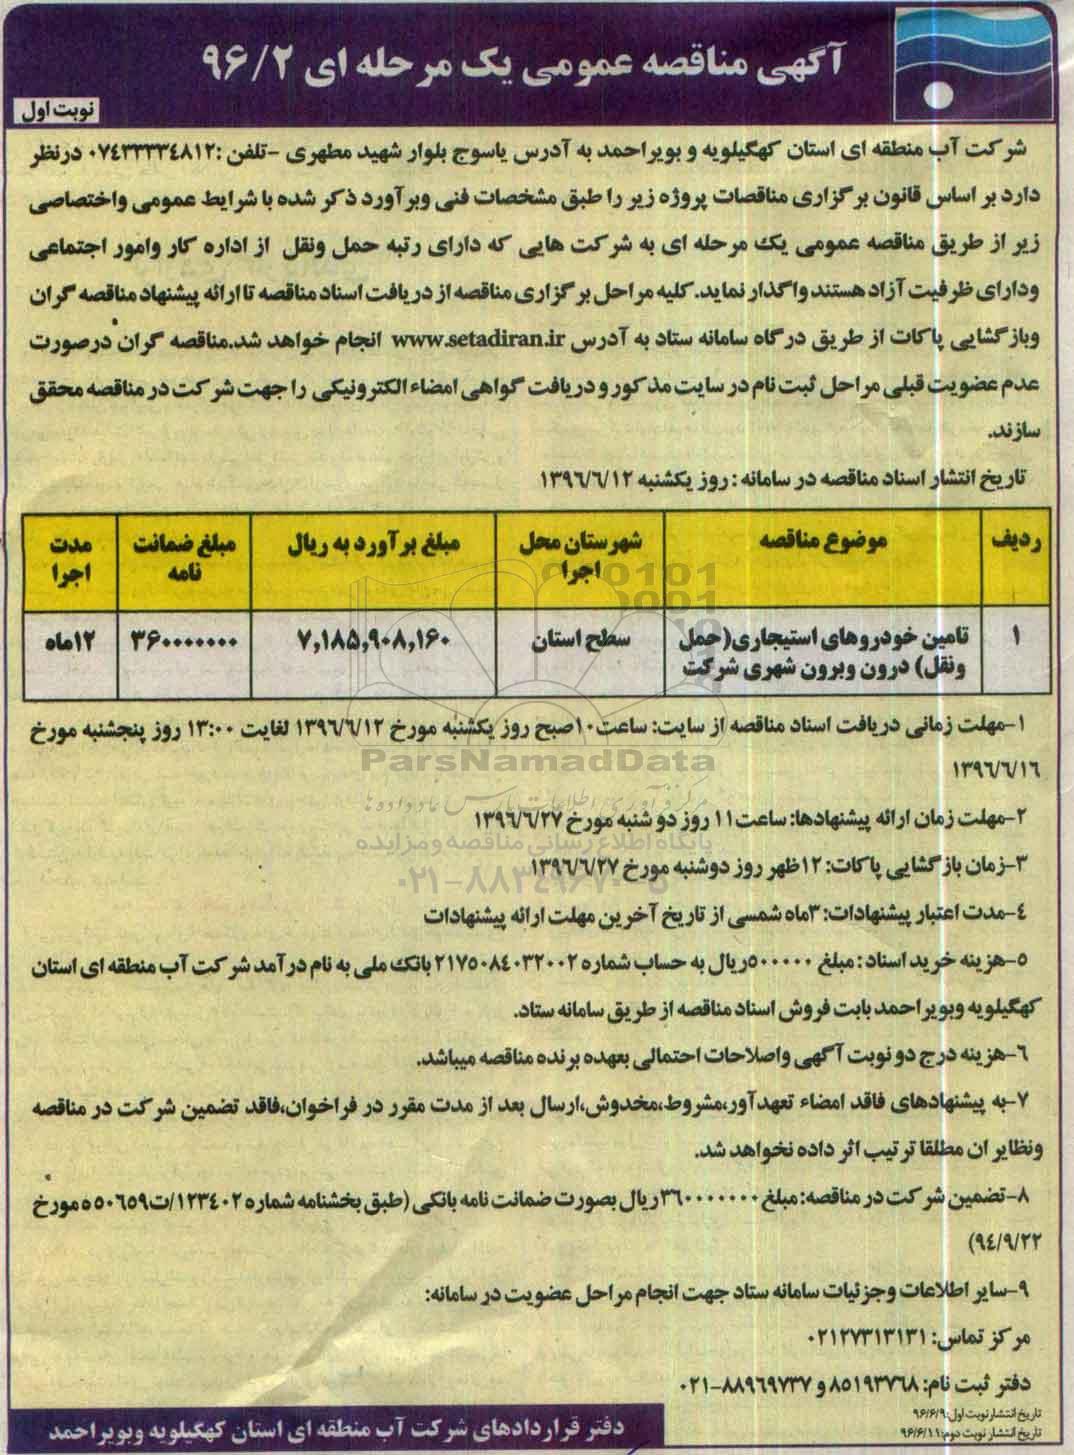 آگهی مناقصه عمومی یک مرحله ای ۹۶/۲
نوبت اول
شرکت آب منطقه ای استان کهگیلویه و بویراحمد به آدرس یاسوج بلوار شهید مطهری -تلفن :۰۷٤۳۳۳۳٤۸۱۲ درنظر
دارد بر اساس قانون برگزاری مناقصات پروژه زیر را طبق مشخصات فنی وبرآورد ذکر شده با شرایط عمومی واختصاصی
زیر از طریق مناقصه عمومی یک مرحله ای به شرکت هایی که دارای رتبه حمل ونقل از اداره کار وامور اجتماعی
ودارای ظرفیت آزاد هستند واگذار نماید.کلیه مراحل برگزاری مناقصه از دریافت اسناد مناقصه تا ارائه پیشنهاد مناقصه گران
وبازگشایی پاکات از طریق درگاه سامانه ستاد به آدرس www.setadiran.ir انجام خواهد شد.مناقصه گران درصورت
عدم عضویت قبلی مراحل ثبت نام در سایت مذکور و دریافت گواهی امضاء الکترونیکی را جهت شرکت در مناقصه محقق
سازند.
تاریخ انتشار اسناد مناقصه در سامانه : روز یکشنبه ۱۳۹٦/٦/۱۲
ردیف موضوع مناقصه شهرستان محل اجرا مبلغ برآورد به ریال مبلغ ضمانت نامه مدت اجرا
۱ تامین خودروهای استیجاری(حمل ونقل) درون وبرون شهری شرکت سطح استان ۷,۱۸۵,۹۰۸,۱۶۰ ۳۶۰۰۰۰۰۰۰ ۱۲ماه
۱-مهلت زمانی دریافت اسناد مناقصه از سایت: ساعت۱۰صبح روز یکشنبه مورخ ۱۳۹٦/٦/۱۲ لغایت ۱۳:۰۰ روز پنجشنبه مورخ
۱۳۹٦/٦/۱٦
۲-مهلت زمان ارائه پیشنهادها: ساعت۱۱ روز دو شنبه مورخ ۱۳۹٦/٦/۲۷
۳-زمان بازگشایی پاکات: ۱۲ظهر روز دوشنبه مورخ ۱۳۹٦/٦/۲۷
٤-مدت اعتبار پیشنهادات: ۳ماه شمسی از تاریخ آخرین مهلت ارائه پیشنهادات
۵-هزینه خرید اسناد : مبلغ ۵۰۰۰۰۰ریال به حساب شماره ۲۱۷۵۰۸٤۰۳۲۰۰۲ بانک ملی به نام درآمد شرکت آب منطقه ای استان
کهگیلویه وبویراحمد بابت فروش اسناد مناقصه از طریق سامانه ستاد.
٦-هزینه درج دو نوبت آگهی واصلاحات احتمالی بعهده برنده مناقصه میباشد.
۷-به پیشنهادهای فاقد امضاء تعهدآور،مشروط،مخدوش،ارسال بعد از مدت مقرر در فراخوان،فاقد تضمین شرکت در مناقصه
ونظایر ان مطلقا ترتیب اثر داده نخواهد شد.
۸-تضمین شرکت در مناقصه: مبلغ ۳٦۰۰۰۰۰۰۰ریال بصورت ضمانت نامه بانکی (طبق بخشنامه شماره ۱۲۳٤۰۲/ت۵۰٦۵۹ه مورخ
۹٤/۹/۲۲)
۹-سایر اطلاعات وجزئیات سامانه ستاد جهت انجام مراحل عضویت در سامانه:
مرکز تماس: ۰۲۱۲۷۳۱۳۱۳۱
دفتر ثبت نام: ۸۵۱۹۳۷٦۸ و ۸۸۹٦۹۷۳۷-۰۲۱
تاریخ انتشار نوبت اول:۹۶/۶/۹
تاریخ انتشار نوبت دوم:۹۶/۶/۱۱
دفتر قراردادهای شرکت آب منطقه ای استان کهگیلویه وبویراحمد
ParsNamadData
مرکز فرآوری اطلاعات پارس نماد داده ها
پایگاه اطلاع رسانی مناقصه و مزایده
۰۲۱-۸۸۳۴۹۶۷۰-۵